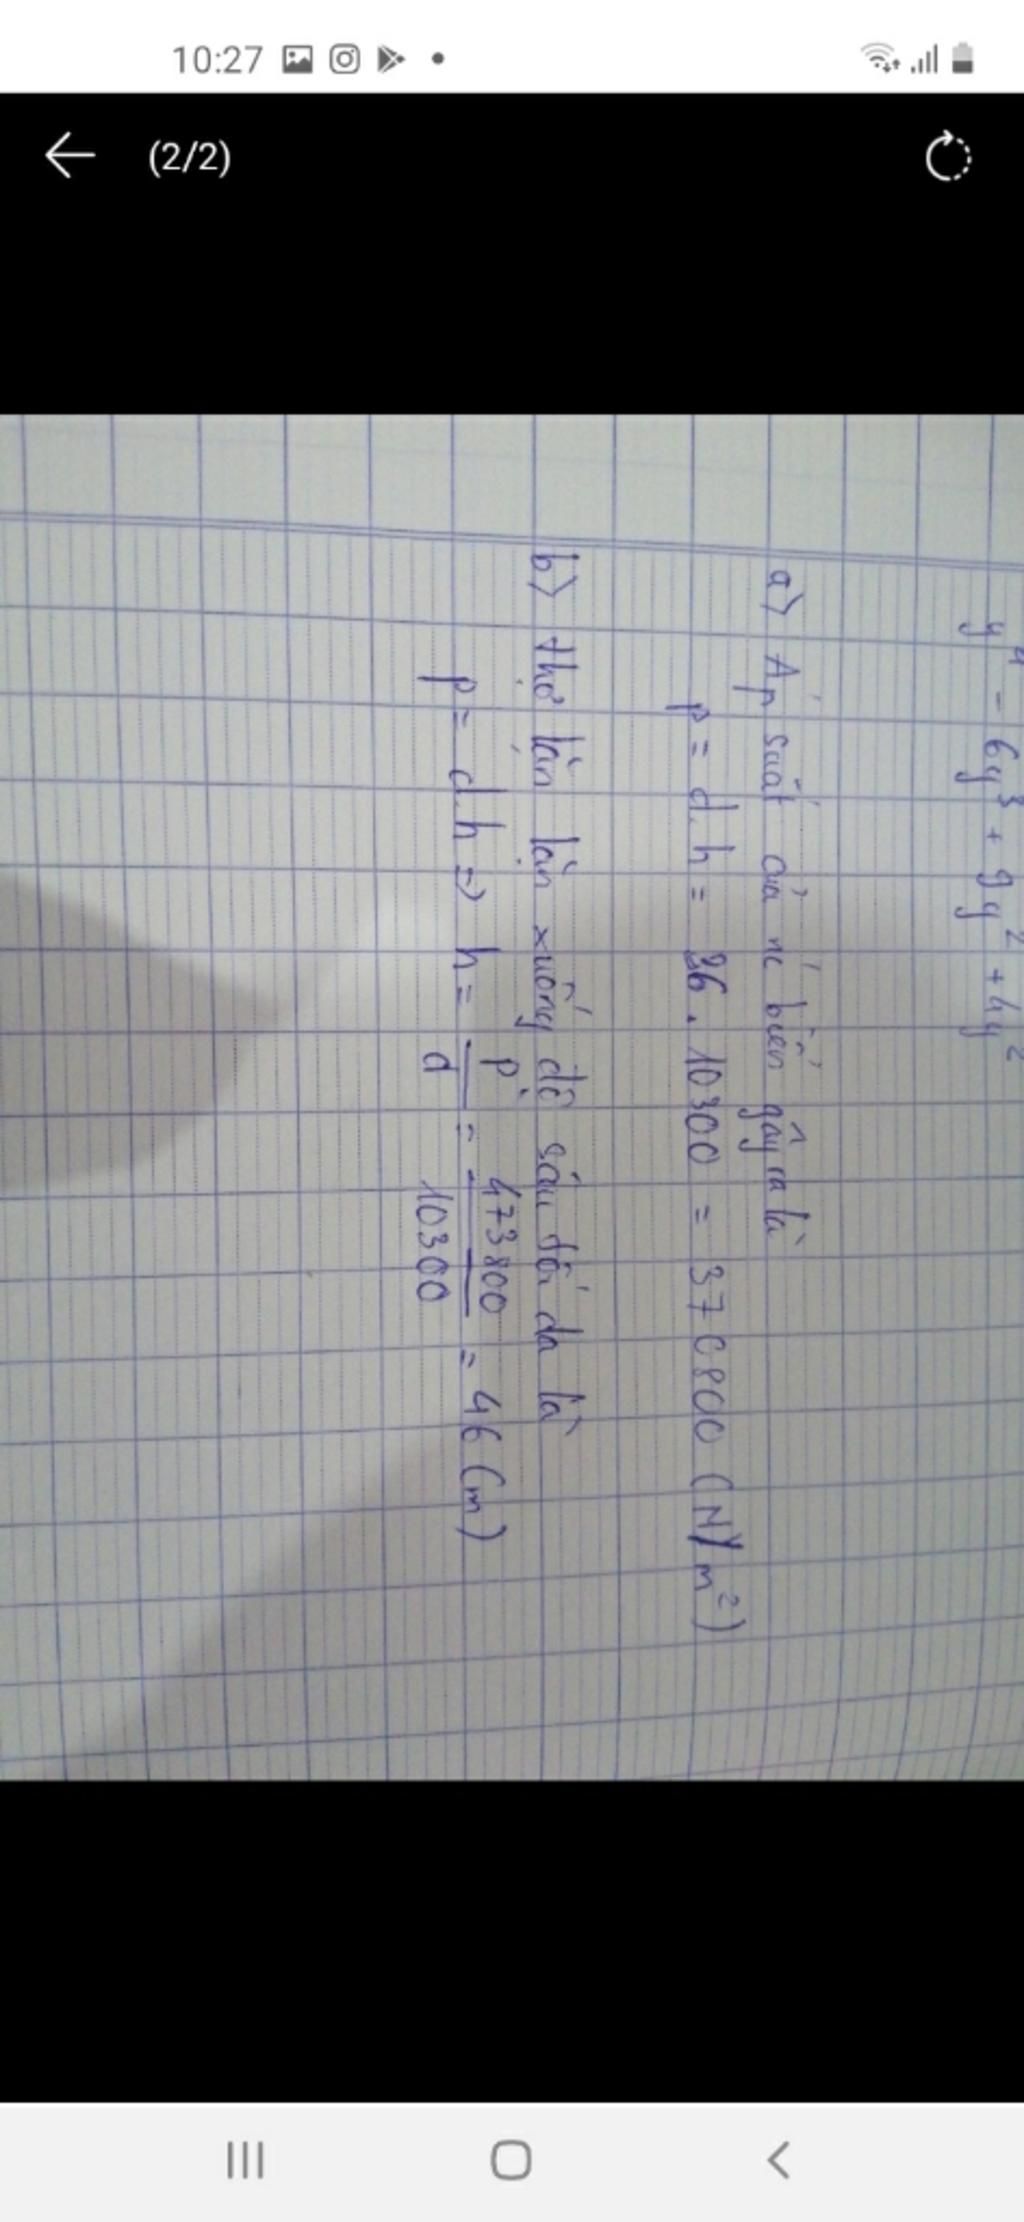 10:27
(2/2)
y⁴ - 6y³ + 9y² + 4y²
a) Áp suất của nc biển gây ra là
p = d.h = 36 . 10300 = 370800 (N/m²)
b) thợ lặn lặn xuống độ sâu tối đa là
p = d.h => h = p/d = 473800/10300 = 46 (m)